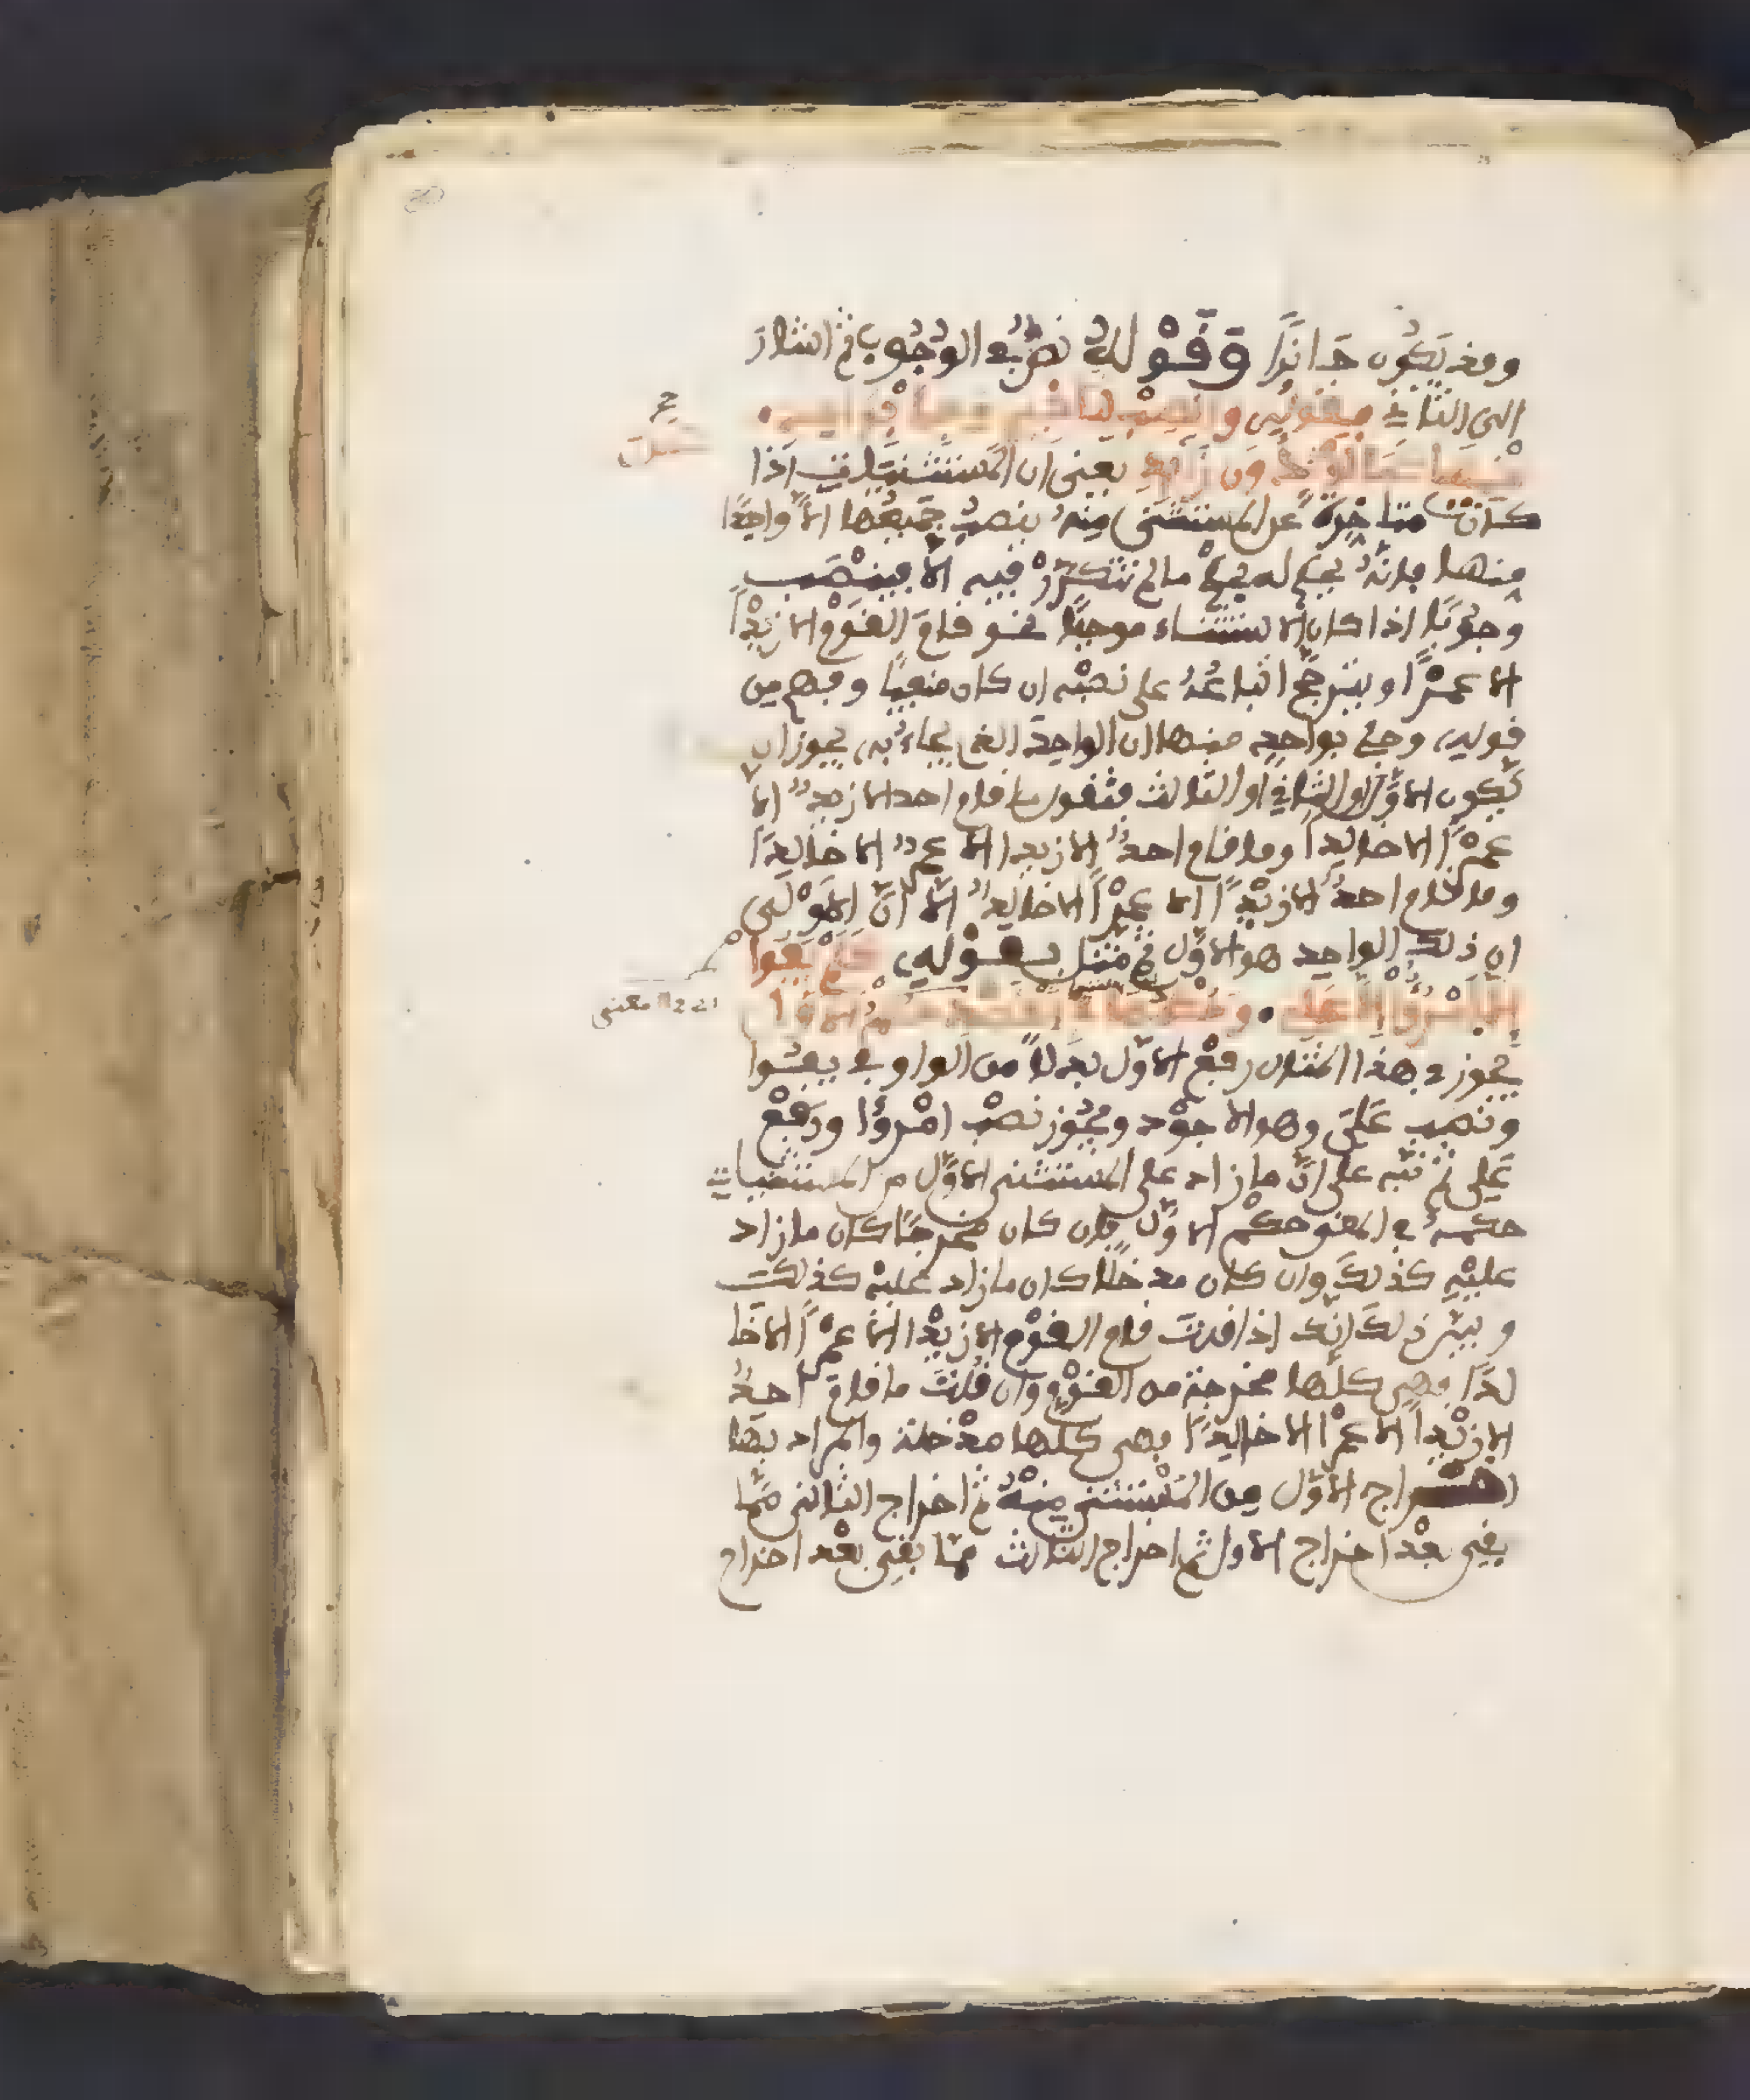 وقد يكون جائزا وقوله نصبه الوجوب ثم اشار
الى الثاني بقوله وانصب لتاخير وجئ بواحد
منها كما لو كان دون زائد يعني ان المستثنيات اذا
كانت متاخرة عن المستثنى منه ينصب جميعها الا واحدا
منها فانه يحكم له بحكم ما لم تتكرر فيه الا فينصب
وجوبا اذا كان الاستثناء موجبا نحو قام القوم الا زيدا
الا عمرا ويترجح اتباعه على نصبه ان كان منفيا وفهم من
قوله وجئ بواحد منها ان الواحد الذي يجاء به يجوز ان
يكون الاول او الثاني او الثالث فتقول ما قام احد الا زيد الا
عمرا الا خالدا وما قام احد الا زيدا الا عمر الا خالدا
وما قام احد الا زيدا الا عمرا الا خالد الا ان الاولى
ان ذلك الواحد هو الاول ثم مثل بقوله كلم يفوا
الا امرؤ الا علي وحكمها في القصد حكم الاول
يجوز في هذا المثال رفع الاول بدلا من الواو في يفوا
ونصب علي وهو الاجود ويجوز نصب امرؤا ورفع
علي ثم نبه على ان ما زاد على المستثنى الاول من المستثنيات
حكمه في المعنى حكم الاول فان كان مخرجا كان ما زاد
عليه كذلك وان كان مدخلا كان ما زاد عليه كذلك
وبيان ذلك انك اذا قلت قام القوم الا زيدا الا عمرا الا خا
لدا فهي كلها مخرجة من القوم وان قلت ما قام احد
الا زيدا الا عمرا الا خالدا فهي كلها مدخلة والمراد بها
اخراج الاول من المستثنى منه ثم اخراج الثاني مما
بقي بعد اخراج الاول ثم اخراج الثالث مما بقي بعد اخراج